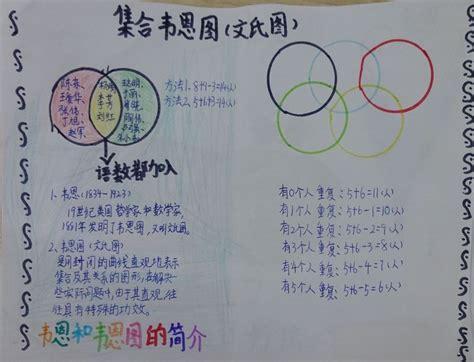 集合韦恩图(文氏图)
方法1、8+9-3=14(人)
方法2、5+6+3=14(人)
语数都加入
1、韦恩(1834-1923)
19世纪英国哲学家和数学家,
1881年发明了韦恩图,又叫文氏图。
2、韦恩图(文氏图)
是用封闭的曲线直观地表示
集合及其关系的图形,在解决一
些实际问题中,由于其直观,往往
让具有特殊的功效。
有0个人重复:5+6=11(人)
有1个人重复:5+6-1=10(人)
有2个人重复:5+6-2=9(人)
有3个人重复:5+6-3=8(人)
有4个人重复:5+6-4=7(人)
有5个人重复:5+6-5=6(人)
韦恩和韦恩图的简介